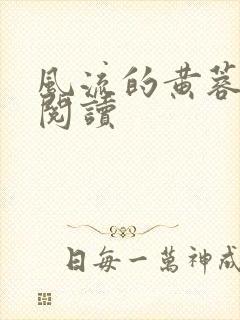 風流的黄蓉
閱讀
日每一萬神成